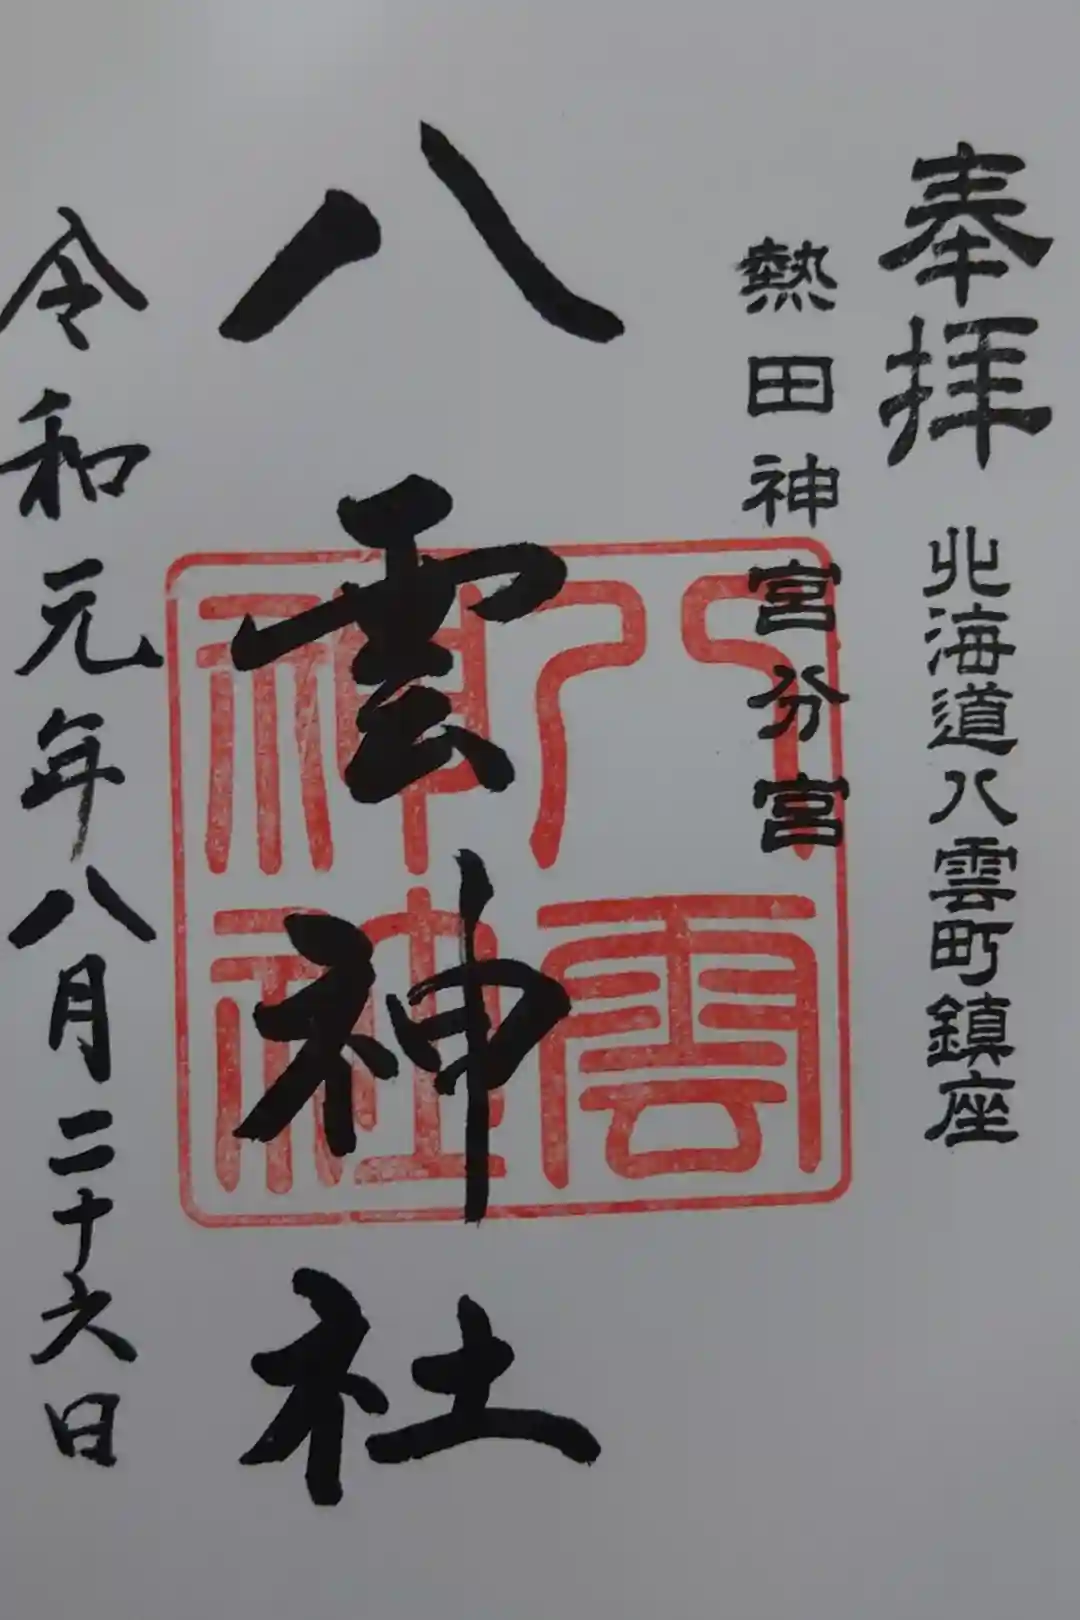 奉拝
北海道八雲町鎮座
熱田神宮分宮
八雲神社
八雲神社
令和元年八月二十六日